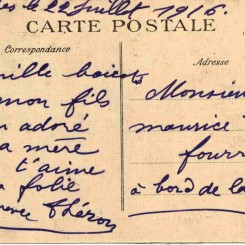 es le 22 Juillet 1916.
CARTE POSTALE
Correspondance
mille baisers
mon fils
adoré
a mère
t'aime
folie
Théron
Adresse
Monsieu
maurice
fourr
à bord de la